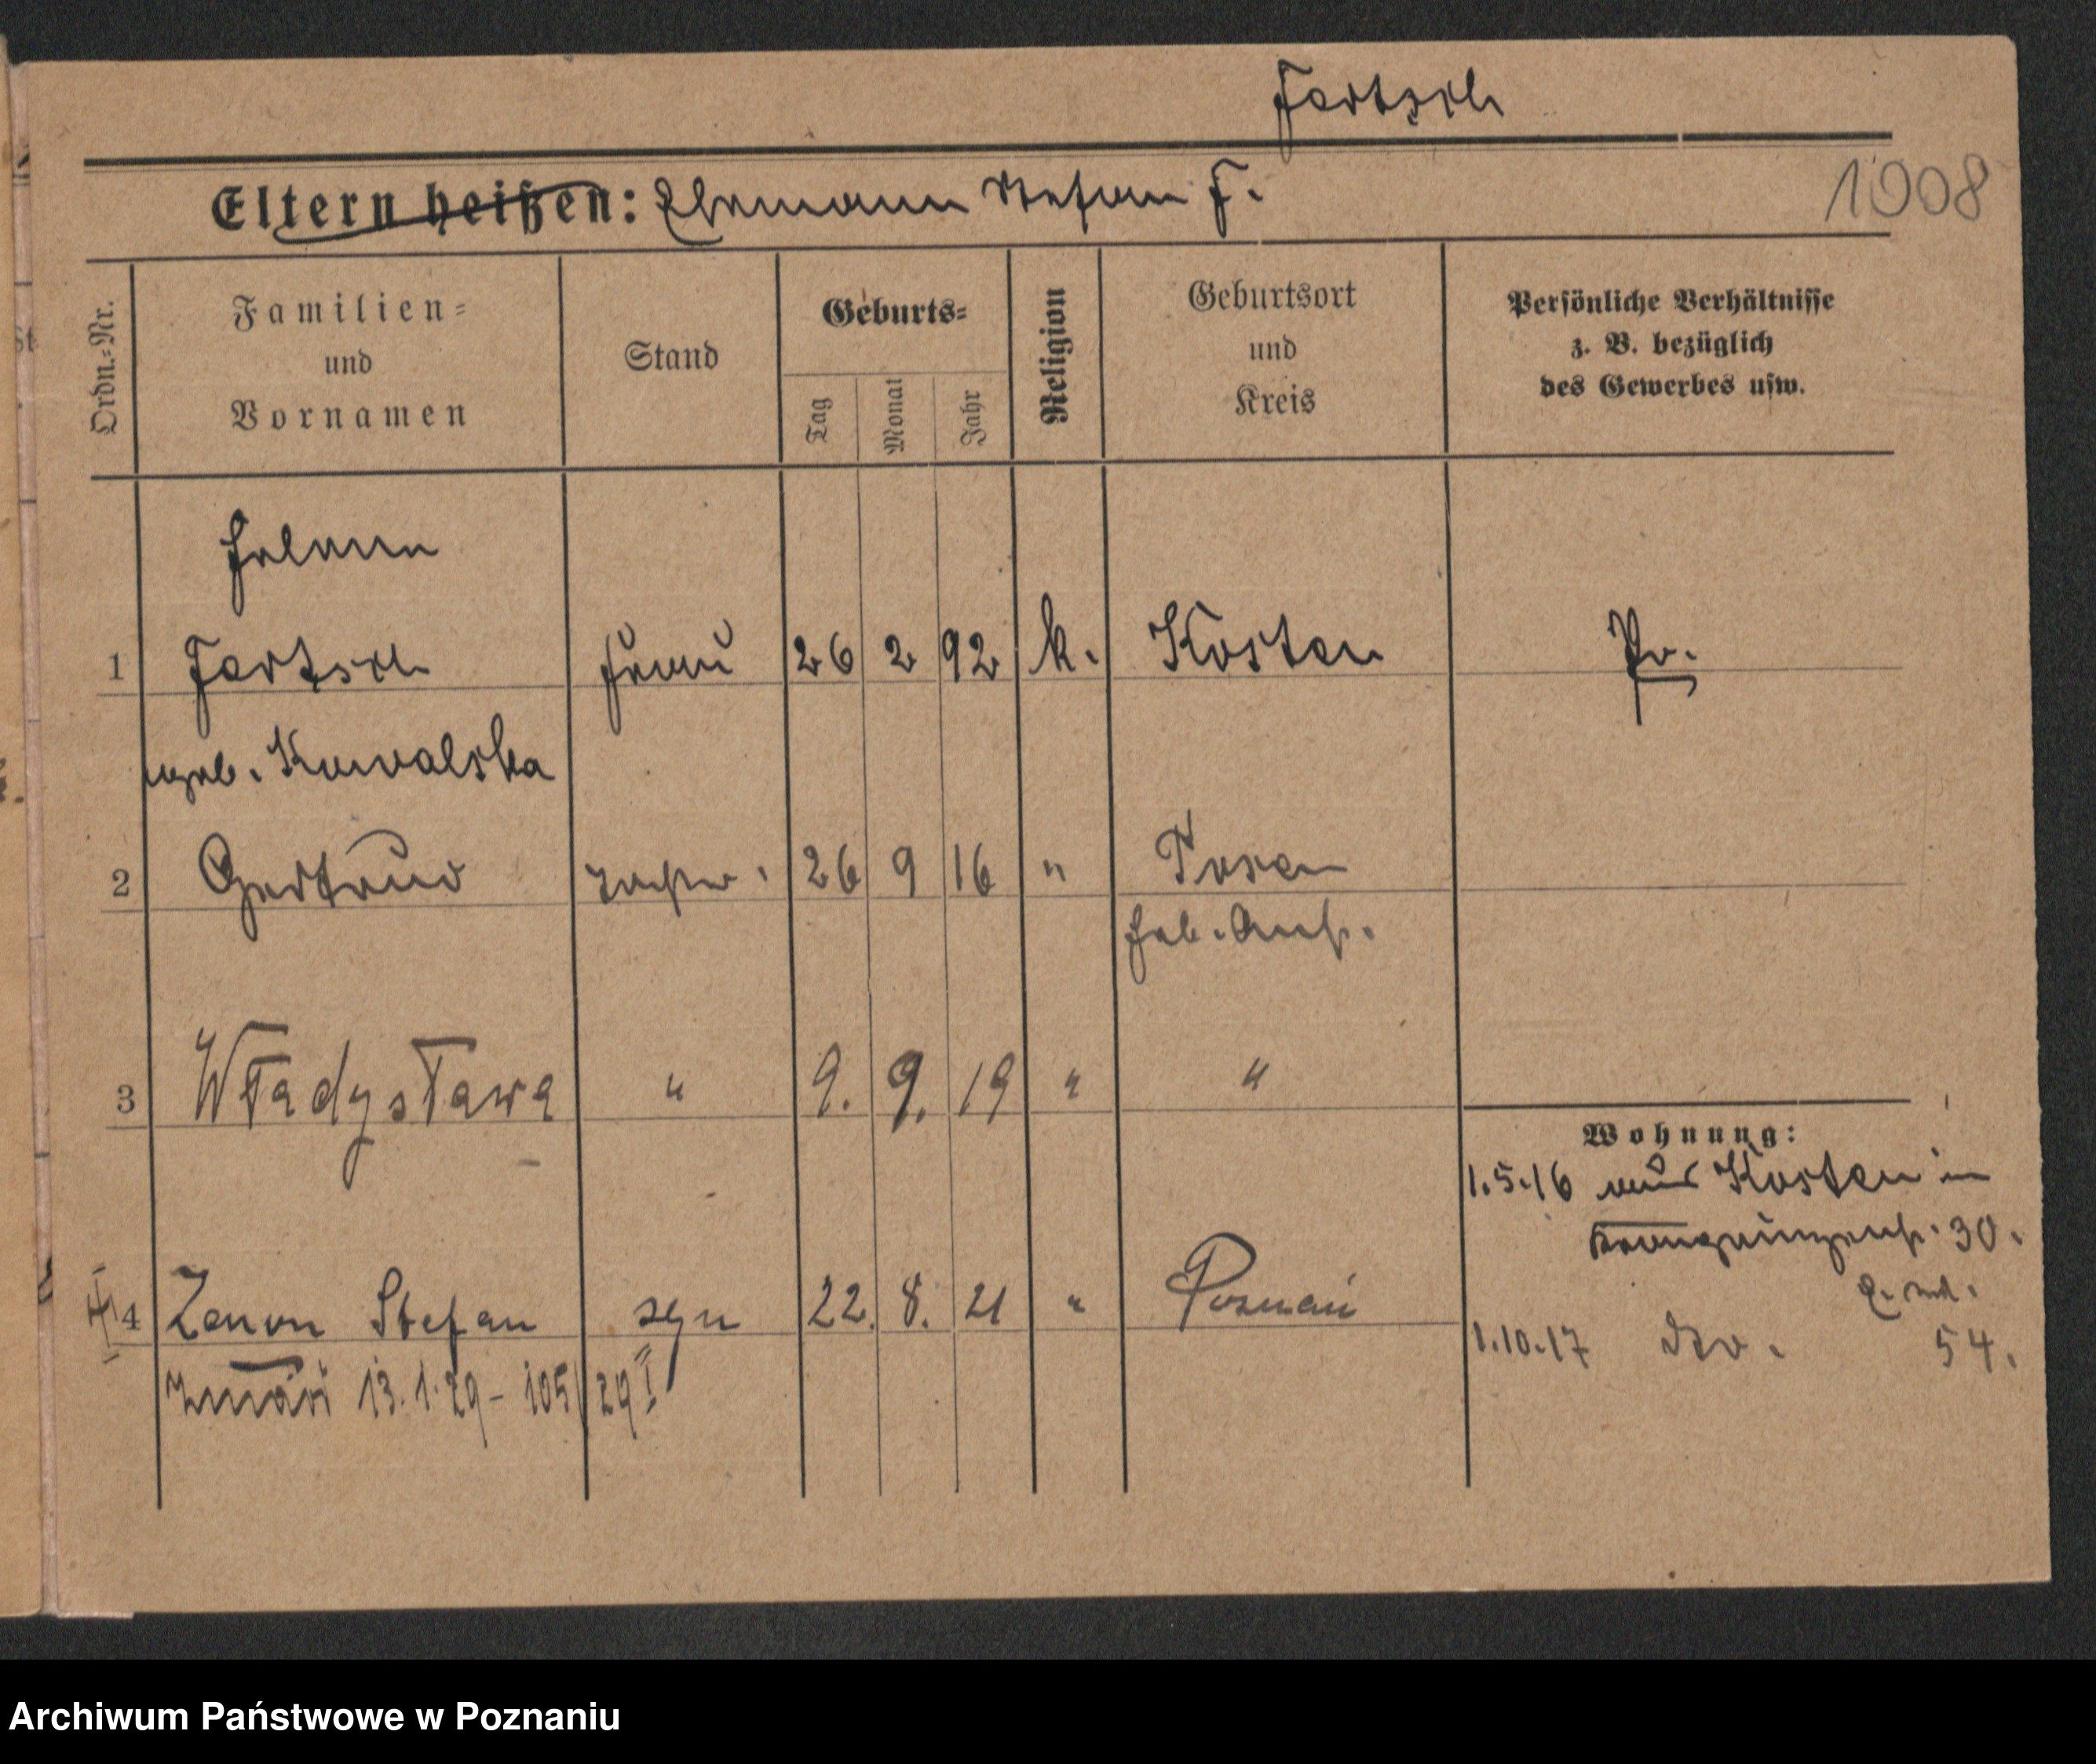 Fertsch
Eltern heißen: Ehemann Stefan F.
1008
Ordn.=Nr.
Familien=
und
Vornamen
Stand
Geburts=
Tag
Monat
Jahr
Religion
Geburtsort
und
Kreis
Persönliche Verhältnisse
z. B. bezüglich
des Gewerbes usw.
Helene
1 Fertsch Frau 26 2 92 k. Kosten Pr.
geb. Kowalska
2 Gertrud 26 9 16 " Posen
Geb. Ausk.
3 Władysława " 9. 9. 19 " "
Wohnung:
1.5.16 aus Kosten in
Kronprinzenstr. 30.
4 Zenon Stefan syn 22. 8. 21 " Poznań
1.10.17 54.
zmarł 13.1.29 - 105/29 I
Archiwum Państwowe w Poznaniu